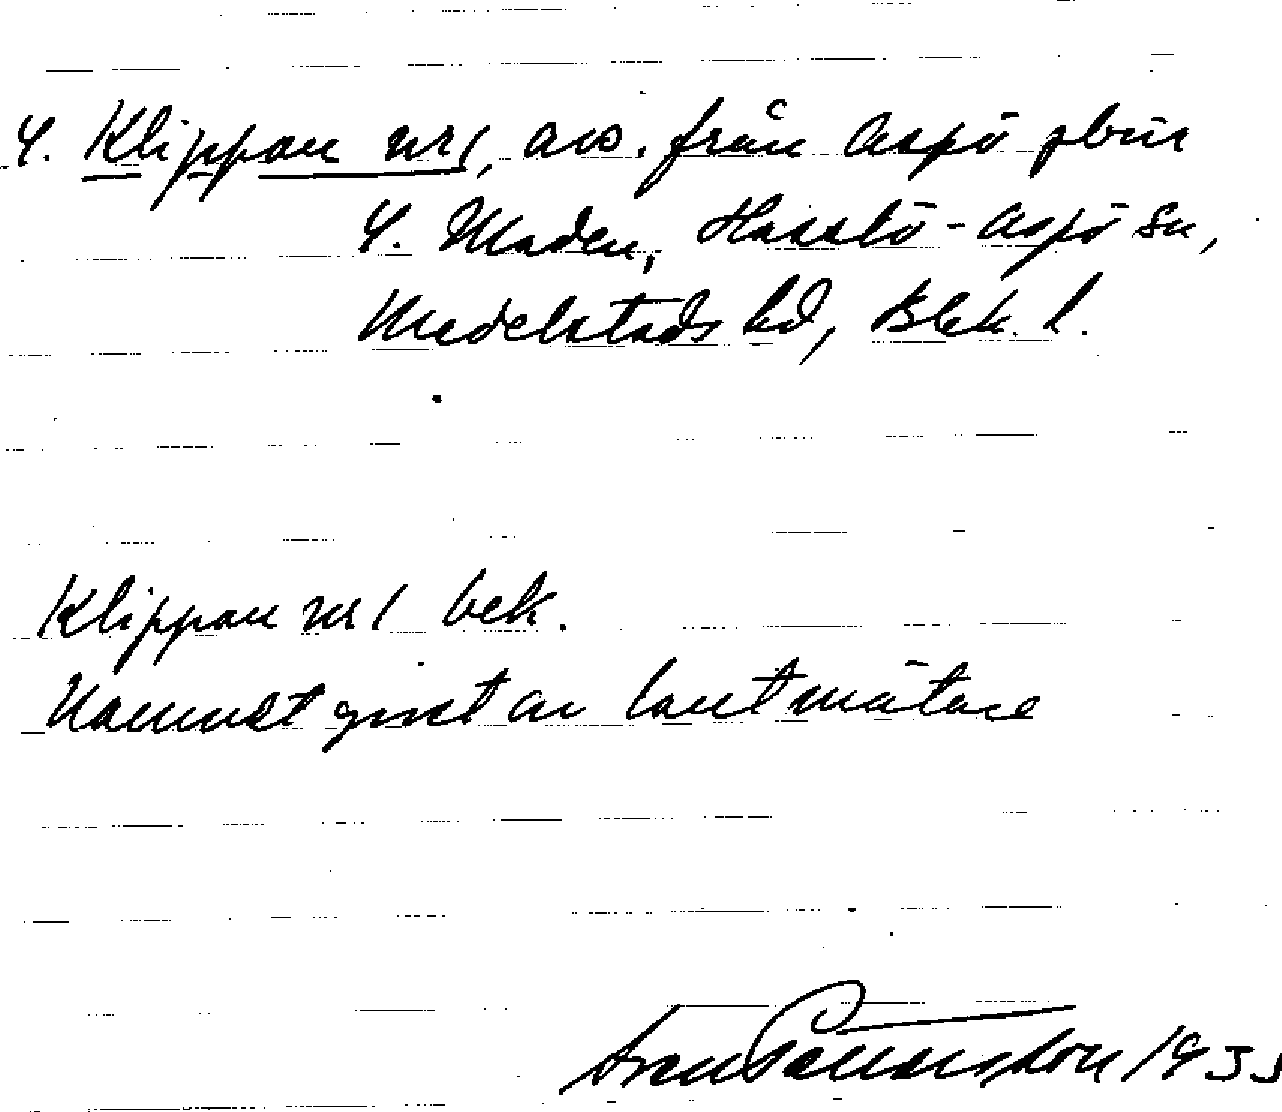 4. Klippan nr 1, avs. från Aspö
4. Maden, Hasslö-Aspö sn,
Medelstads hd, Blek. l.
Klippan nr 1 bek.
Namnet givet av lantmätare